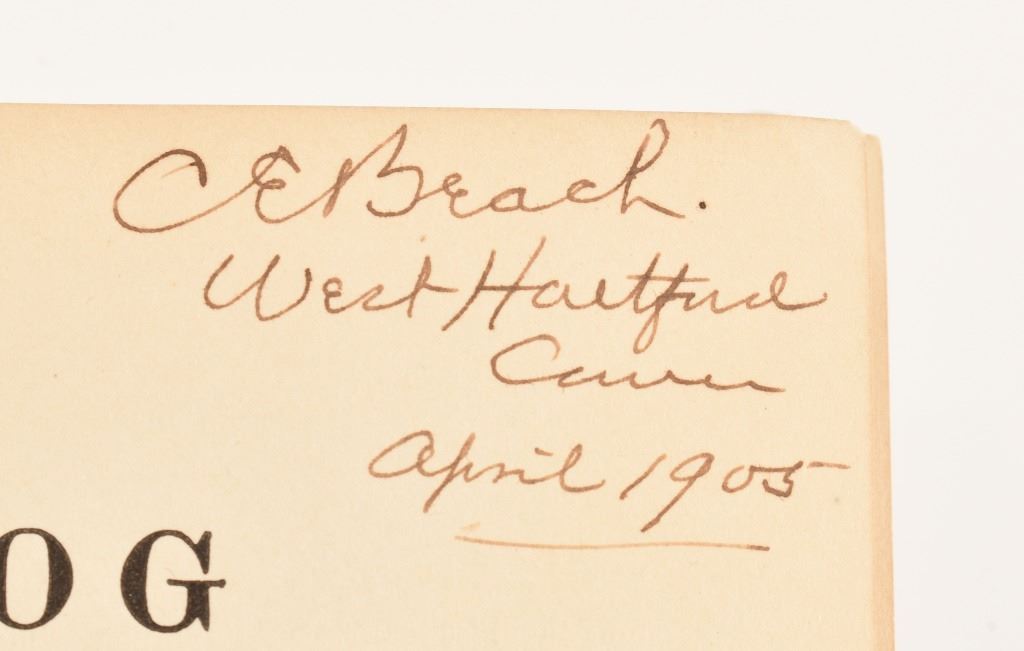 C E Beach.
West Hartford
Conn
April 1905
OG